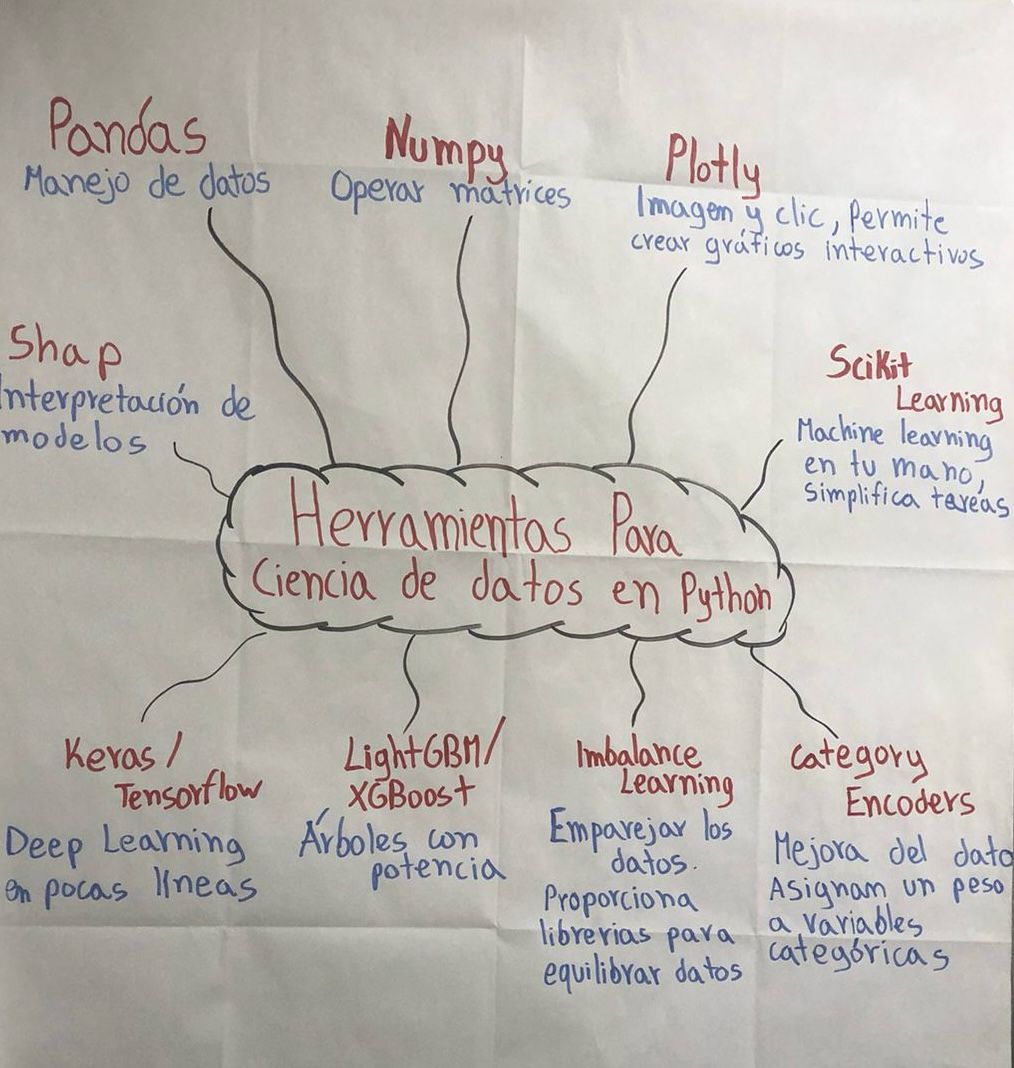 Pandas
Manejo de datos
Numpy
Operar matrices
Plotly
Imagen y clic, Permite
crear gráficos interactivos
Shap
Interpretación de
modelos
Scikit
Learning
Machine learning
en tu mano,
Simplifica tareas
Herramientas Para
Ciencia de datos en Python
Keras /
Tensorflow
Deep Learning
en pocas líneas
LightGBM/
XGBoost
Árboles con
potencia
Imbalance
Learning
Emparejar los
datos.
Proporciona
librerias para
equilibrar datos
Category
Encoders
Mejora del dato
Asignam un peso
a variables
categóricas